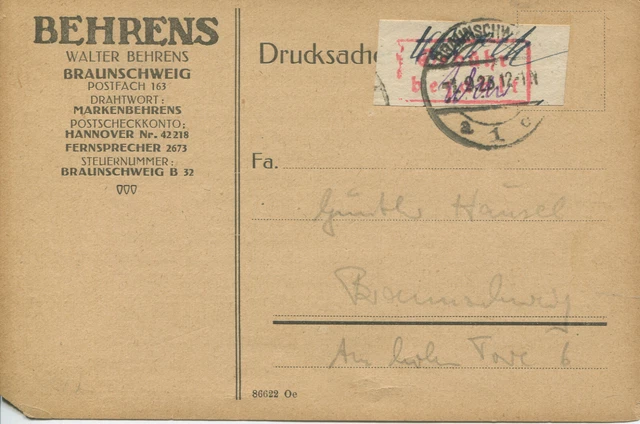 BEHRENS
WALTER BEHRENS
BRAUNSCHWEIG
POSTFACH 163
DRAHTWORT:
MARKENBEHRENS
POSTSCHECKKONTO:
HANNOVER Nr. 42218
FERNSPRECHER 2673
STEUERNUMMER:
BRAUNSCHWEIG B 32
Drucksache
BRAUNSCHW
Gebühr
bezahlt
a 1 c
Fa.
Günther Hausel
Braunschweig
Am hohen Tore 6
86622 Oe